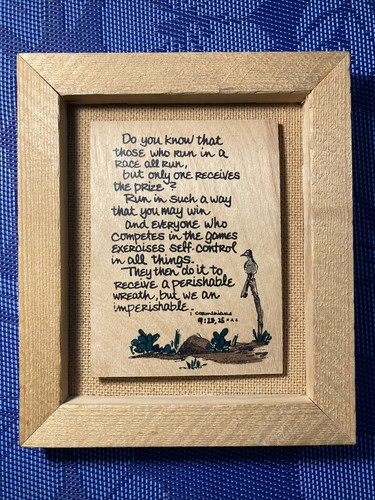 Do you know that
those who run in a
race all run,
but only one receives
the prize?
Run in such a way
that you may win
and everyone who
competes in the games
exercises self-control
in all things.
They then do it to
receive a perishable
wreath, but we an
imperishable.